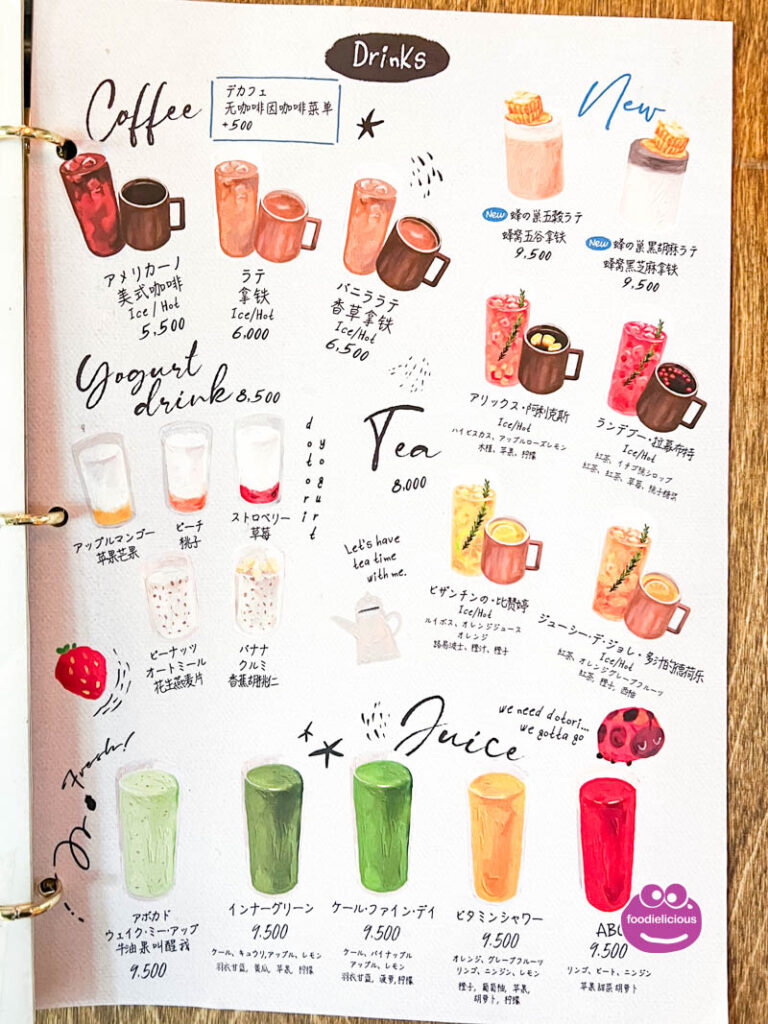 Drinks
Coffee
デカフェ
无咖啡因咖啡菜单
+500
New
アメリカーノ
美式咖啡
Ice / Hot
5,500
ラテ
拿铁
Ice/Hot
6,000
バニララテ
香草拿铁
Ice/Hot
6,500
New 蜂の巣五穀ラテ
蜂窝五谷拿铁
9,500
New 蜂の巣黒胡麻ラテ
蜂窝黑芝麻拿铁
9,500
Yogurt
drink 8,500
dotori
yogurt
アップルマンゴー
苹果芒果
ピーチ
桃子
ストロベリー
草莓
ピーナッツ
オートミール
花生燕麦片
バナナ
クルミ
香蕉胡桃仁
Tea
8,000
Let's have
tea time
with me.
アリックス・阿利克斯
Ice/Hot
ハイビスカス、アップルローズレモン
木槿, 苹果, 柠檬
ランデブー・拉幕布特
Ice/Hot
紅茶、イチゴ桃シロップ
紅茶, 紅茶, 草莓, 桃子糖浆
ビザンチンの・比赞婷
Ice/Hot
ルイボス、オレンジジュース
オレンジ
路易波士, 橙汁, 橙子
ジューシー・デ・ジョレ・多汁的德荷乐
Ice/Hot
紅茶、オレンジグレープフルーツ
紅茶, 橙子, 西柚
we need dotori...
we gotta go
Fresh!
Juice
アボカド
ウェイク・ミー・アップ
牛油果叫醒我
9.500
インナーグリーン
9.500
ケール、キュウリ,アップル、レモン
羽衣甘蓝, 黄瓜, 苹果, 柠檬
ケール・ファイン・デイ
9.500
ケール、パイナップル
アップル、レモン
羽衣甘蓝, 菠萝,柠檬
ビタミンシャワー
9.500
オレンジ、グレープフルーツ
リンゴ、ニンジン、レモン
橙子, 葡萄柚, 苹果,
胡萝卜, 柠檬
9.500
リンゴ、ビート、ニンジン
苹果甜菜胡萝卜
foodielicious